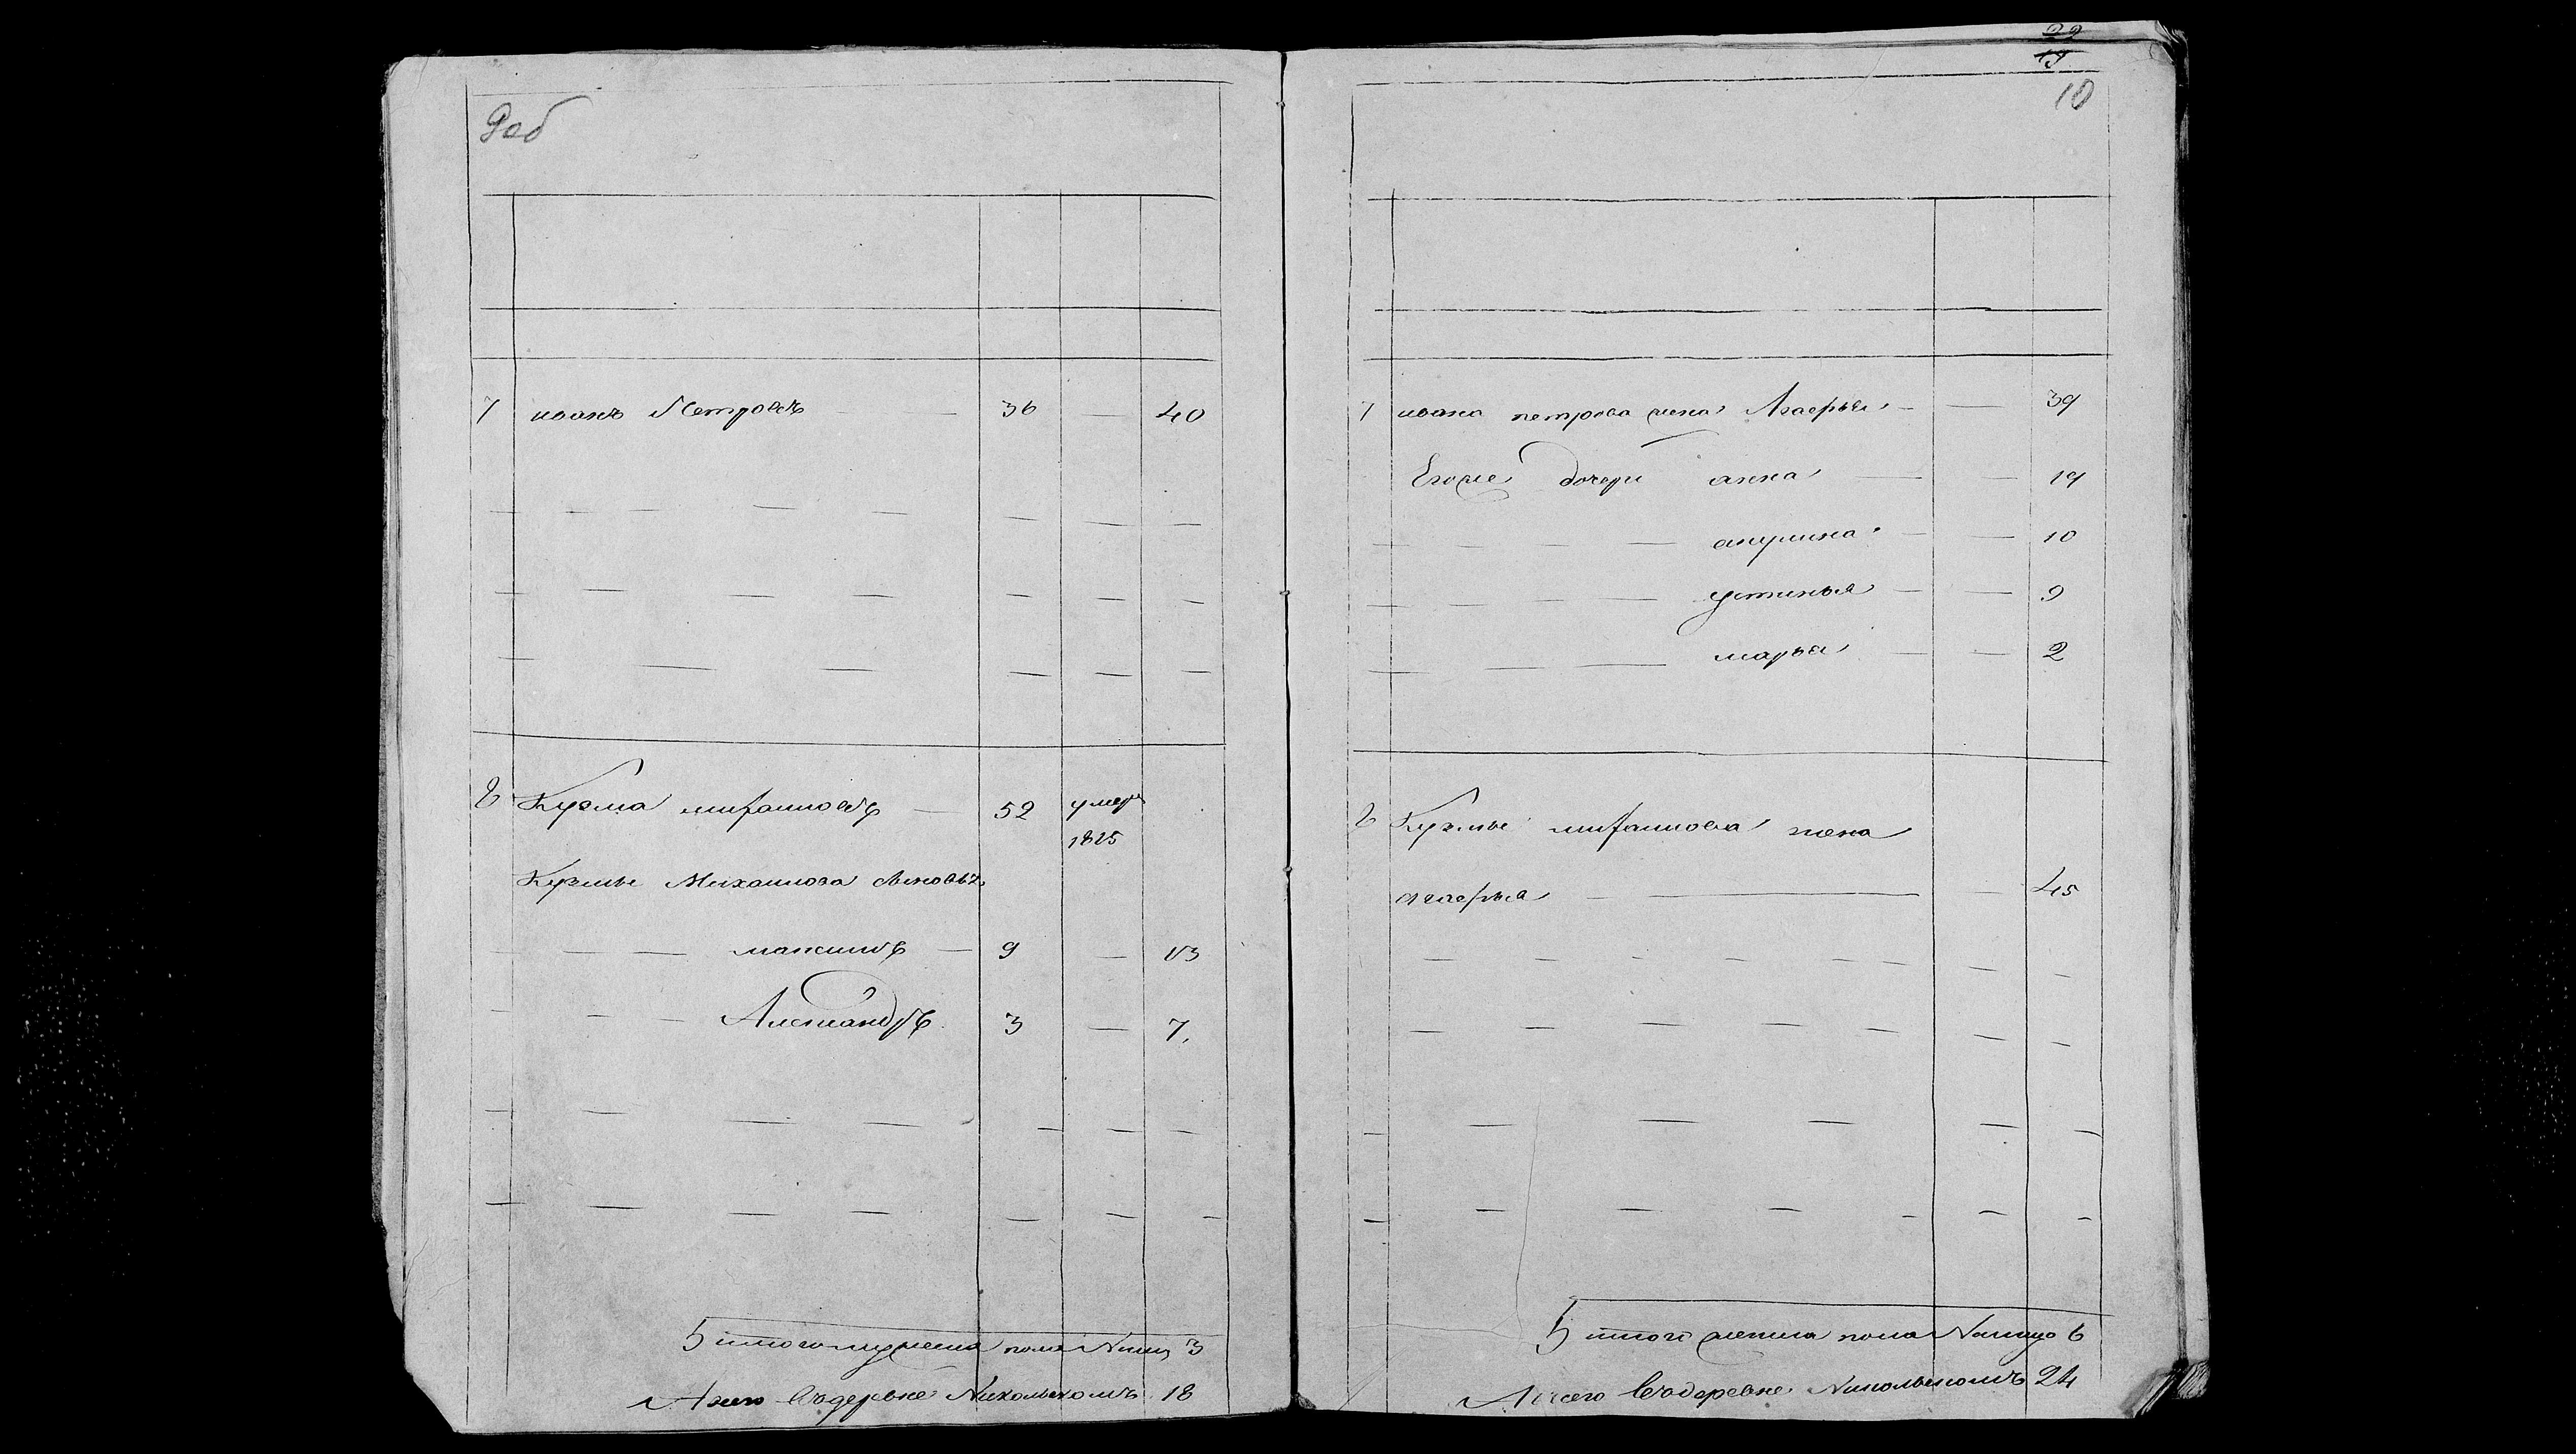 9об
7 иванъ Петровъ 36 — 40
8 Кузма михаиловъ 52 умеръ
1825
Кузмы Михаилова сыновья
максимъ 9 — 13
Александръ 3 — 7
итого мужеска пола налицо 3
А всего въ деревне Никольскомъ 18
22
19
10
7 ивана петрова жена Агаерья 39
Его же дочери анна 19
акулина 10
устинья 9
марья 2
8 Кузмы михаилова жена
агаерья 45
итого женска пола налицо 6
А всего въ деревне Никольскомъ 24